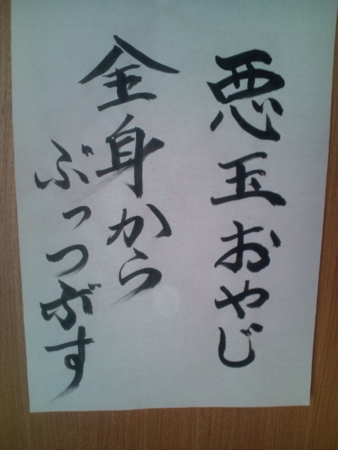 悪玉おやじ
全身から
ぶっつぶす